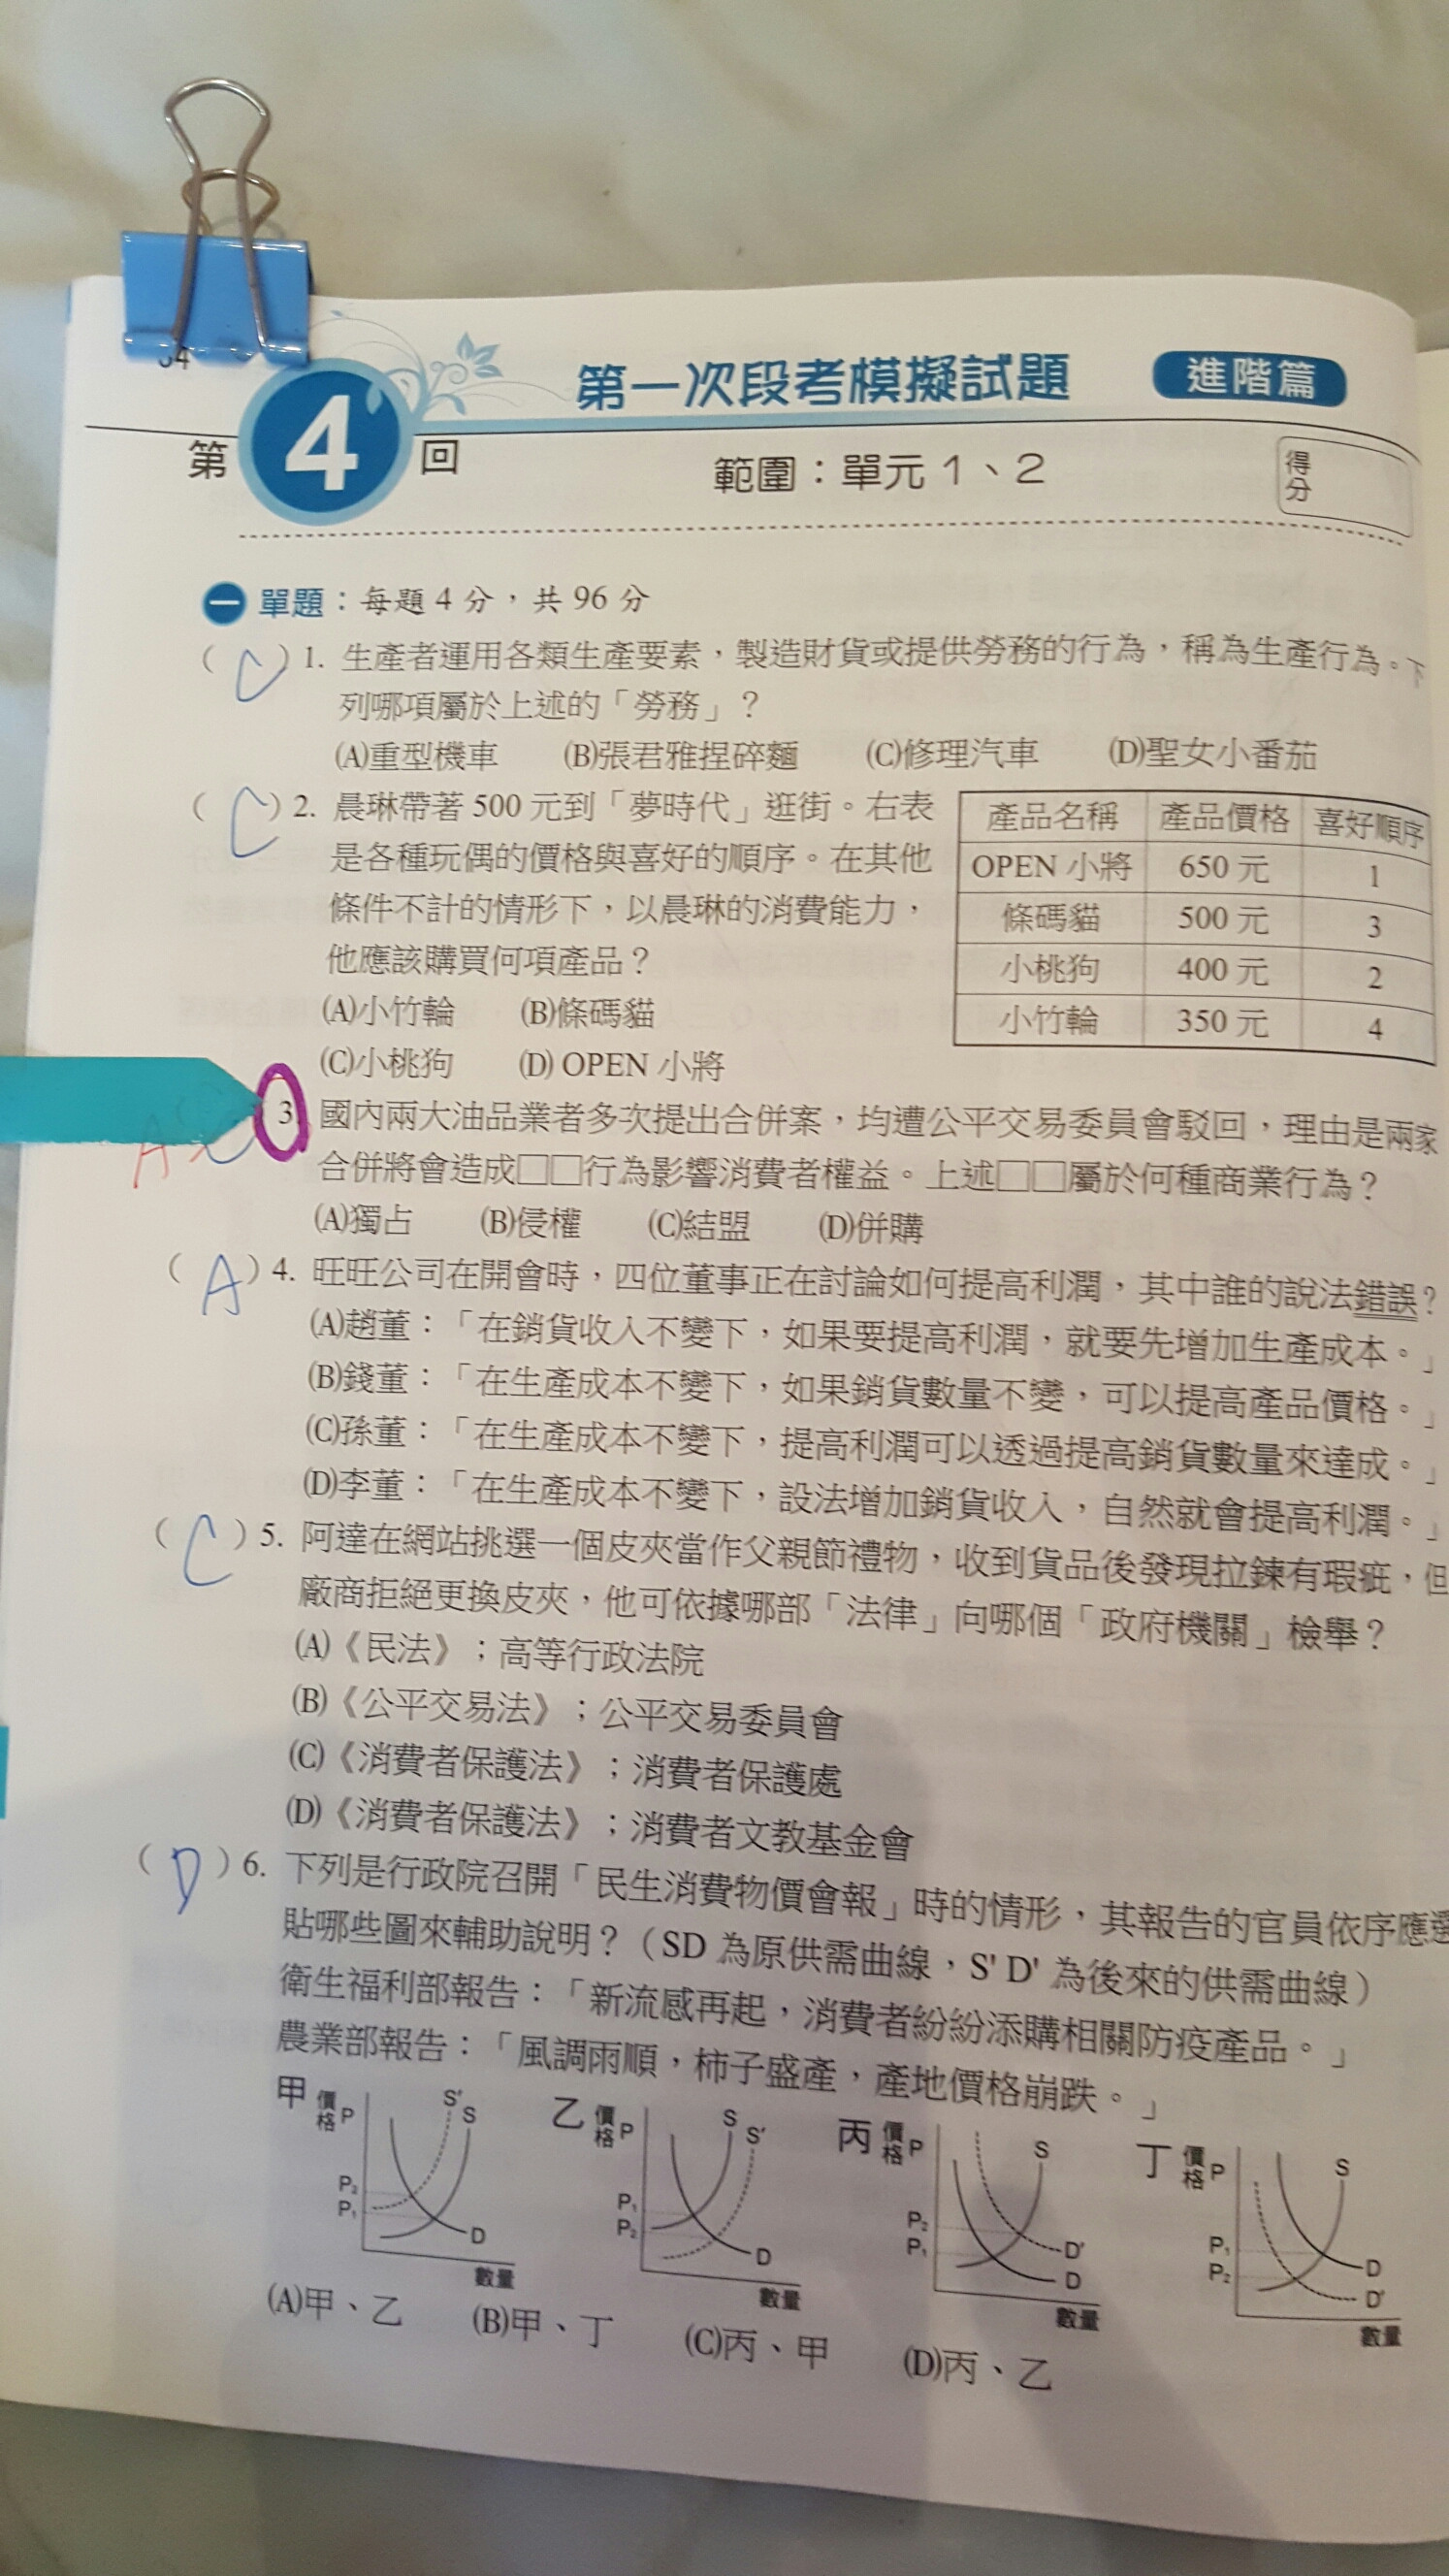 第一次段考模擬試題 進階篇
第4回 範圍:單元1、2 得分
一 單題:每題4分,共96分
( C )1. 生產者運用各類生產要素,製造財貨或提供勞務的行為,稱為生產行為。下
列哪項屬於上述的「勞務」?
(A)重型機車 (B)張君雅捏碎麵 (C)修理汽車 (D)聖女小番茄
( C )2. 晨琳帶著500元到「夢時代」逛街。右表
是各種玩偶的價格與喜好的順序。在其他
條件不計的情形下,以晨琳的消費能力,
他應該購買何項產品?
(A)小竹輪 (B)條碼貓
(C)小桃狗 (D) OPEN小將
產品名稱 產品價格 喜好順序
OPEN小將 650元 1
條碼貓 500元 3
小桃狗 400元 2
小竹輪 350元 4
A 3. 國內兩大油品業者多次提出合併案,均遭公平交易委員會駁回,理由是兩家
合併將會造成□□行為影響消費者權益。上述□□屬於何種商業行為?
(A)獨占 (B)侵權 (C)結盟 (D)併購
( A )4. 旺旺公司在開會時,四位董事正在討論如何提高利潤,其中誰的說法錯誤?
(A)趙董:「在銷貨收入不變下,如果要提高利潤,就要先增加生產成本。」
(B)錢董:「在生產成本不變下,如果銷貨數量不變,可以提高產品價格。」
(C)孫董:「在生產成本不變下,提高利潤可以透過提高銷貨數量來達成。」
(D)李董:「在生產成本不變下,設法增加銷貨收入,自然就會提高利潤。」
( C )5. 阿達在網站挑選一個皮夾當作父親節禮物,收到貨品後發現拉鍊有瑕疵,但
廠商拒絕更換皮夾,他可依據哪部「法律」向哪個「政府機關」檢舉?
(A)《民法》;高等行政法院
(B)《公平交易法》;公平交易委員會
(C)《消費者保護法》;消費者保護處
(D)《消費者保護法》;消費者文教基金會
( D )6. 下列是行政院召開「民生消費物價會報」時的情形,其報告的官員依序應選
貼哪些圖來輔助說明?(SD為原供需曲線,S' D'為後來的供需曲線)
衛生福利部報告:「新流感再起,消費者紛紛添購相關防疫產品。」
農業部報告:「風調雨順,柿子盛產,產地價格崩跌。」
甲 價格 P S' S P₂ P₁ D 數量
乙 價格 P S S' P₁ P₂ D 數量
丙 價格 P S P₂ P₁ D' D 數量
丁 價格 P S P₁ P₂ D D' 數量
(A)甲、乙 (B)甲、丁 (C)丙、甲 (D)丙、乙